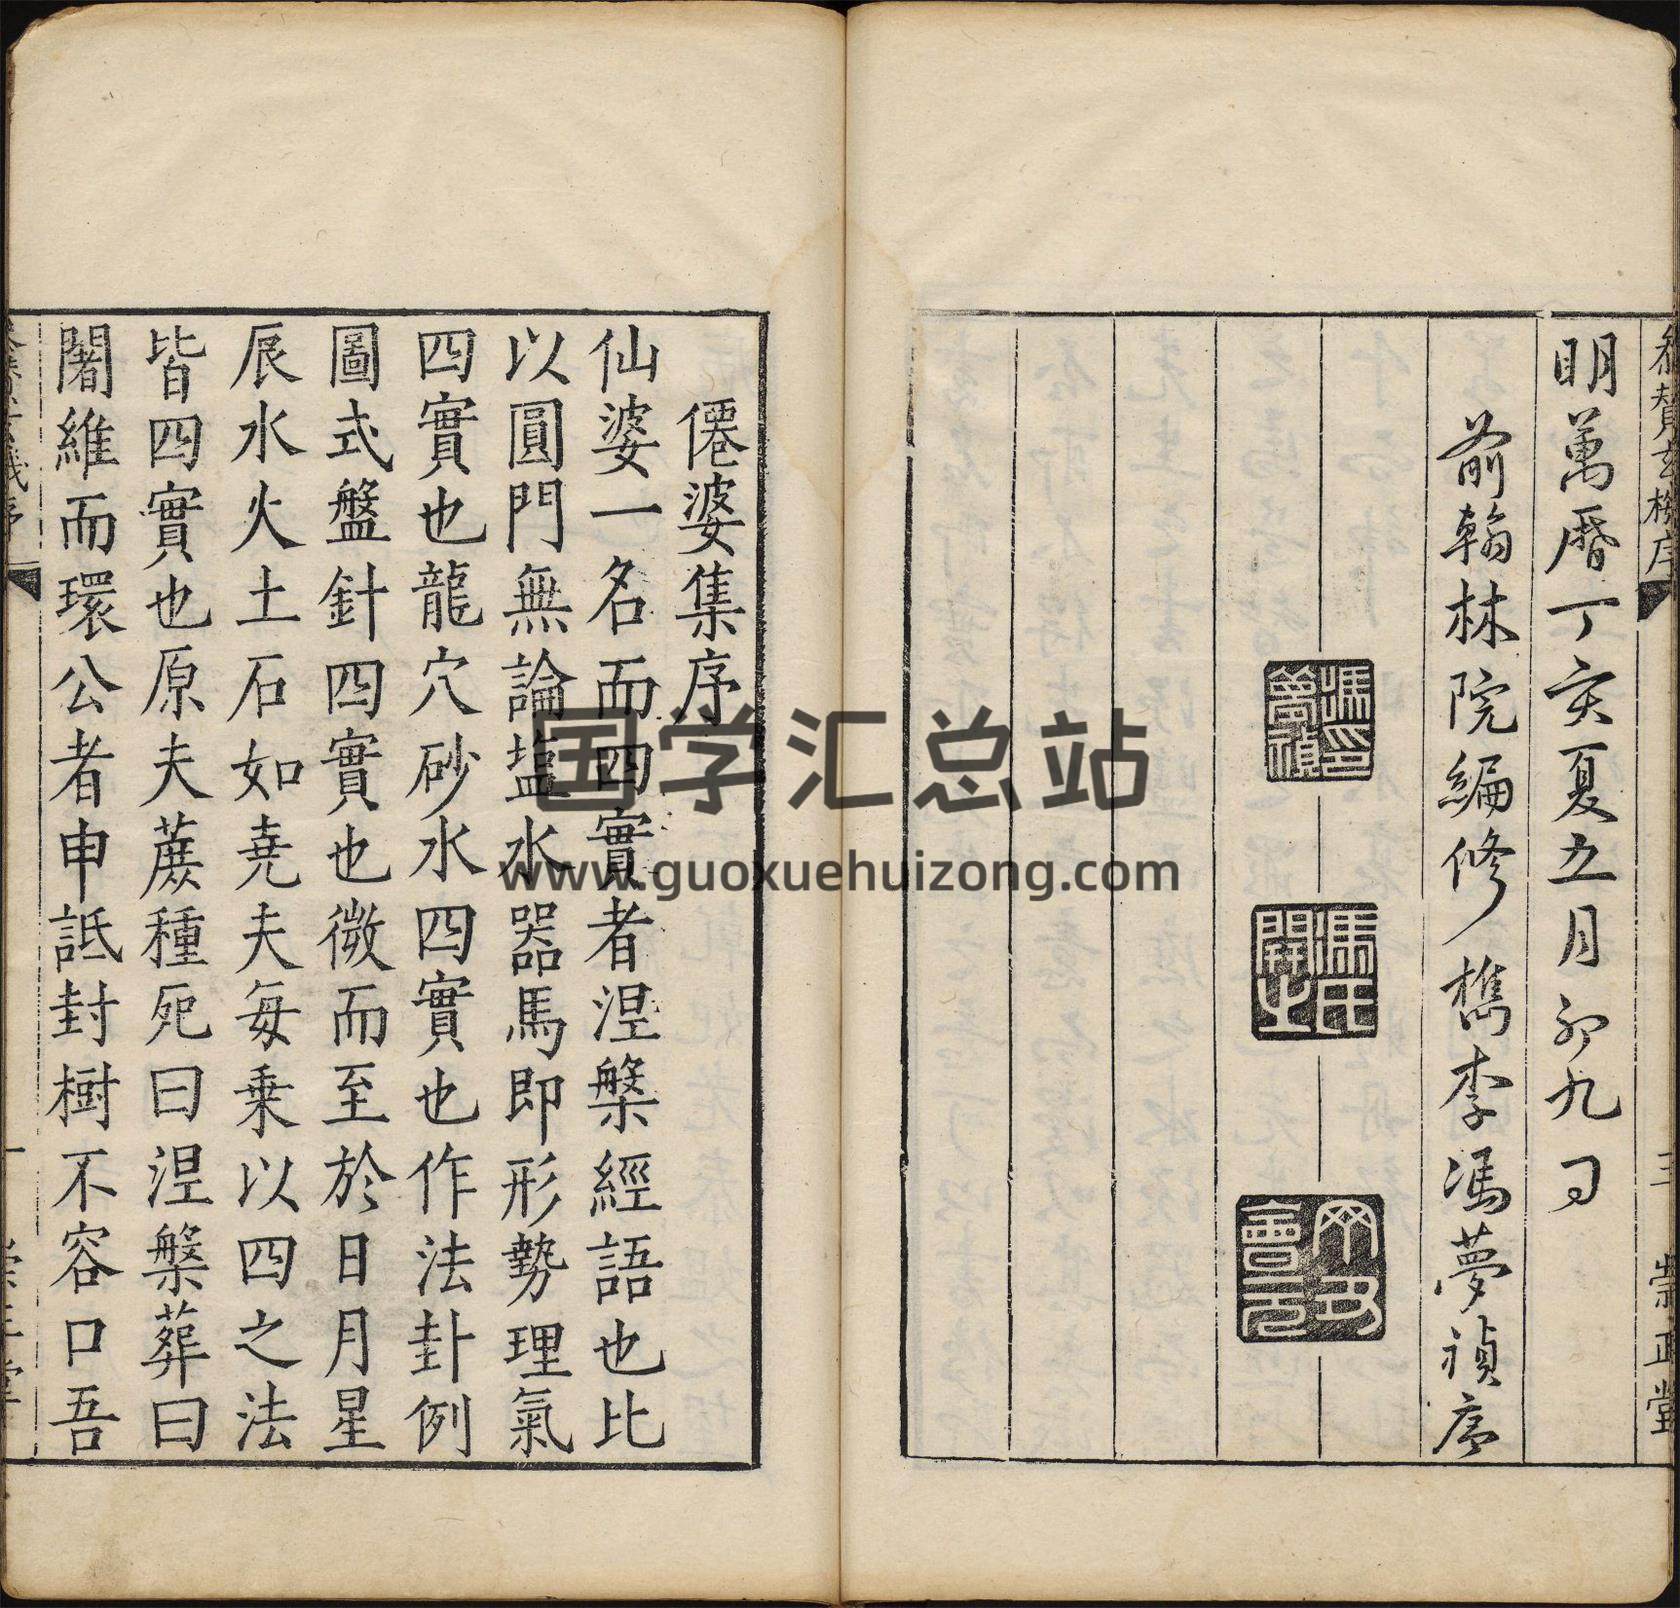 明萬曆丁亥夏五月初九日
前翰林院編修檇李馮夢禎序
馮夢禎印
馮氏開之
會元
玄機序
三
崇正堂
僊婆集序
仙婆一名而四實者涅槃經語也比
以圓門無論塩水器馬即形勢理氣
四實也龍穴砂水四實也作法卦例
圖式盤針四實也微而至於日月星
辰水火土石如堯夫每乗以四之法
皆四實也原夫蔗種死曰涅槃葬曰
闍維而環公者申詆封樹不容口吾
国学汇总站
www.guoxuehuizong.com